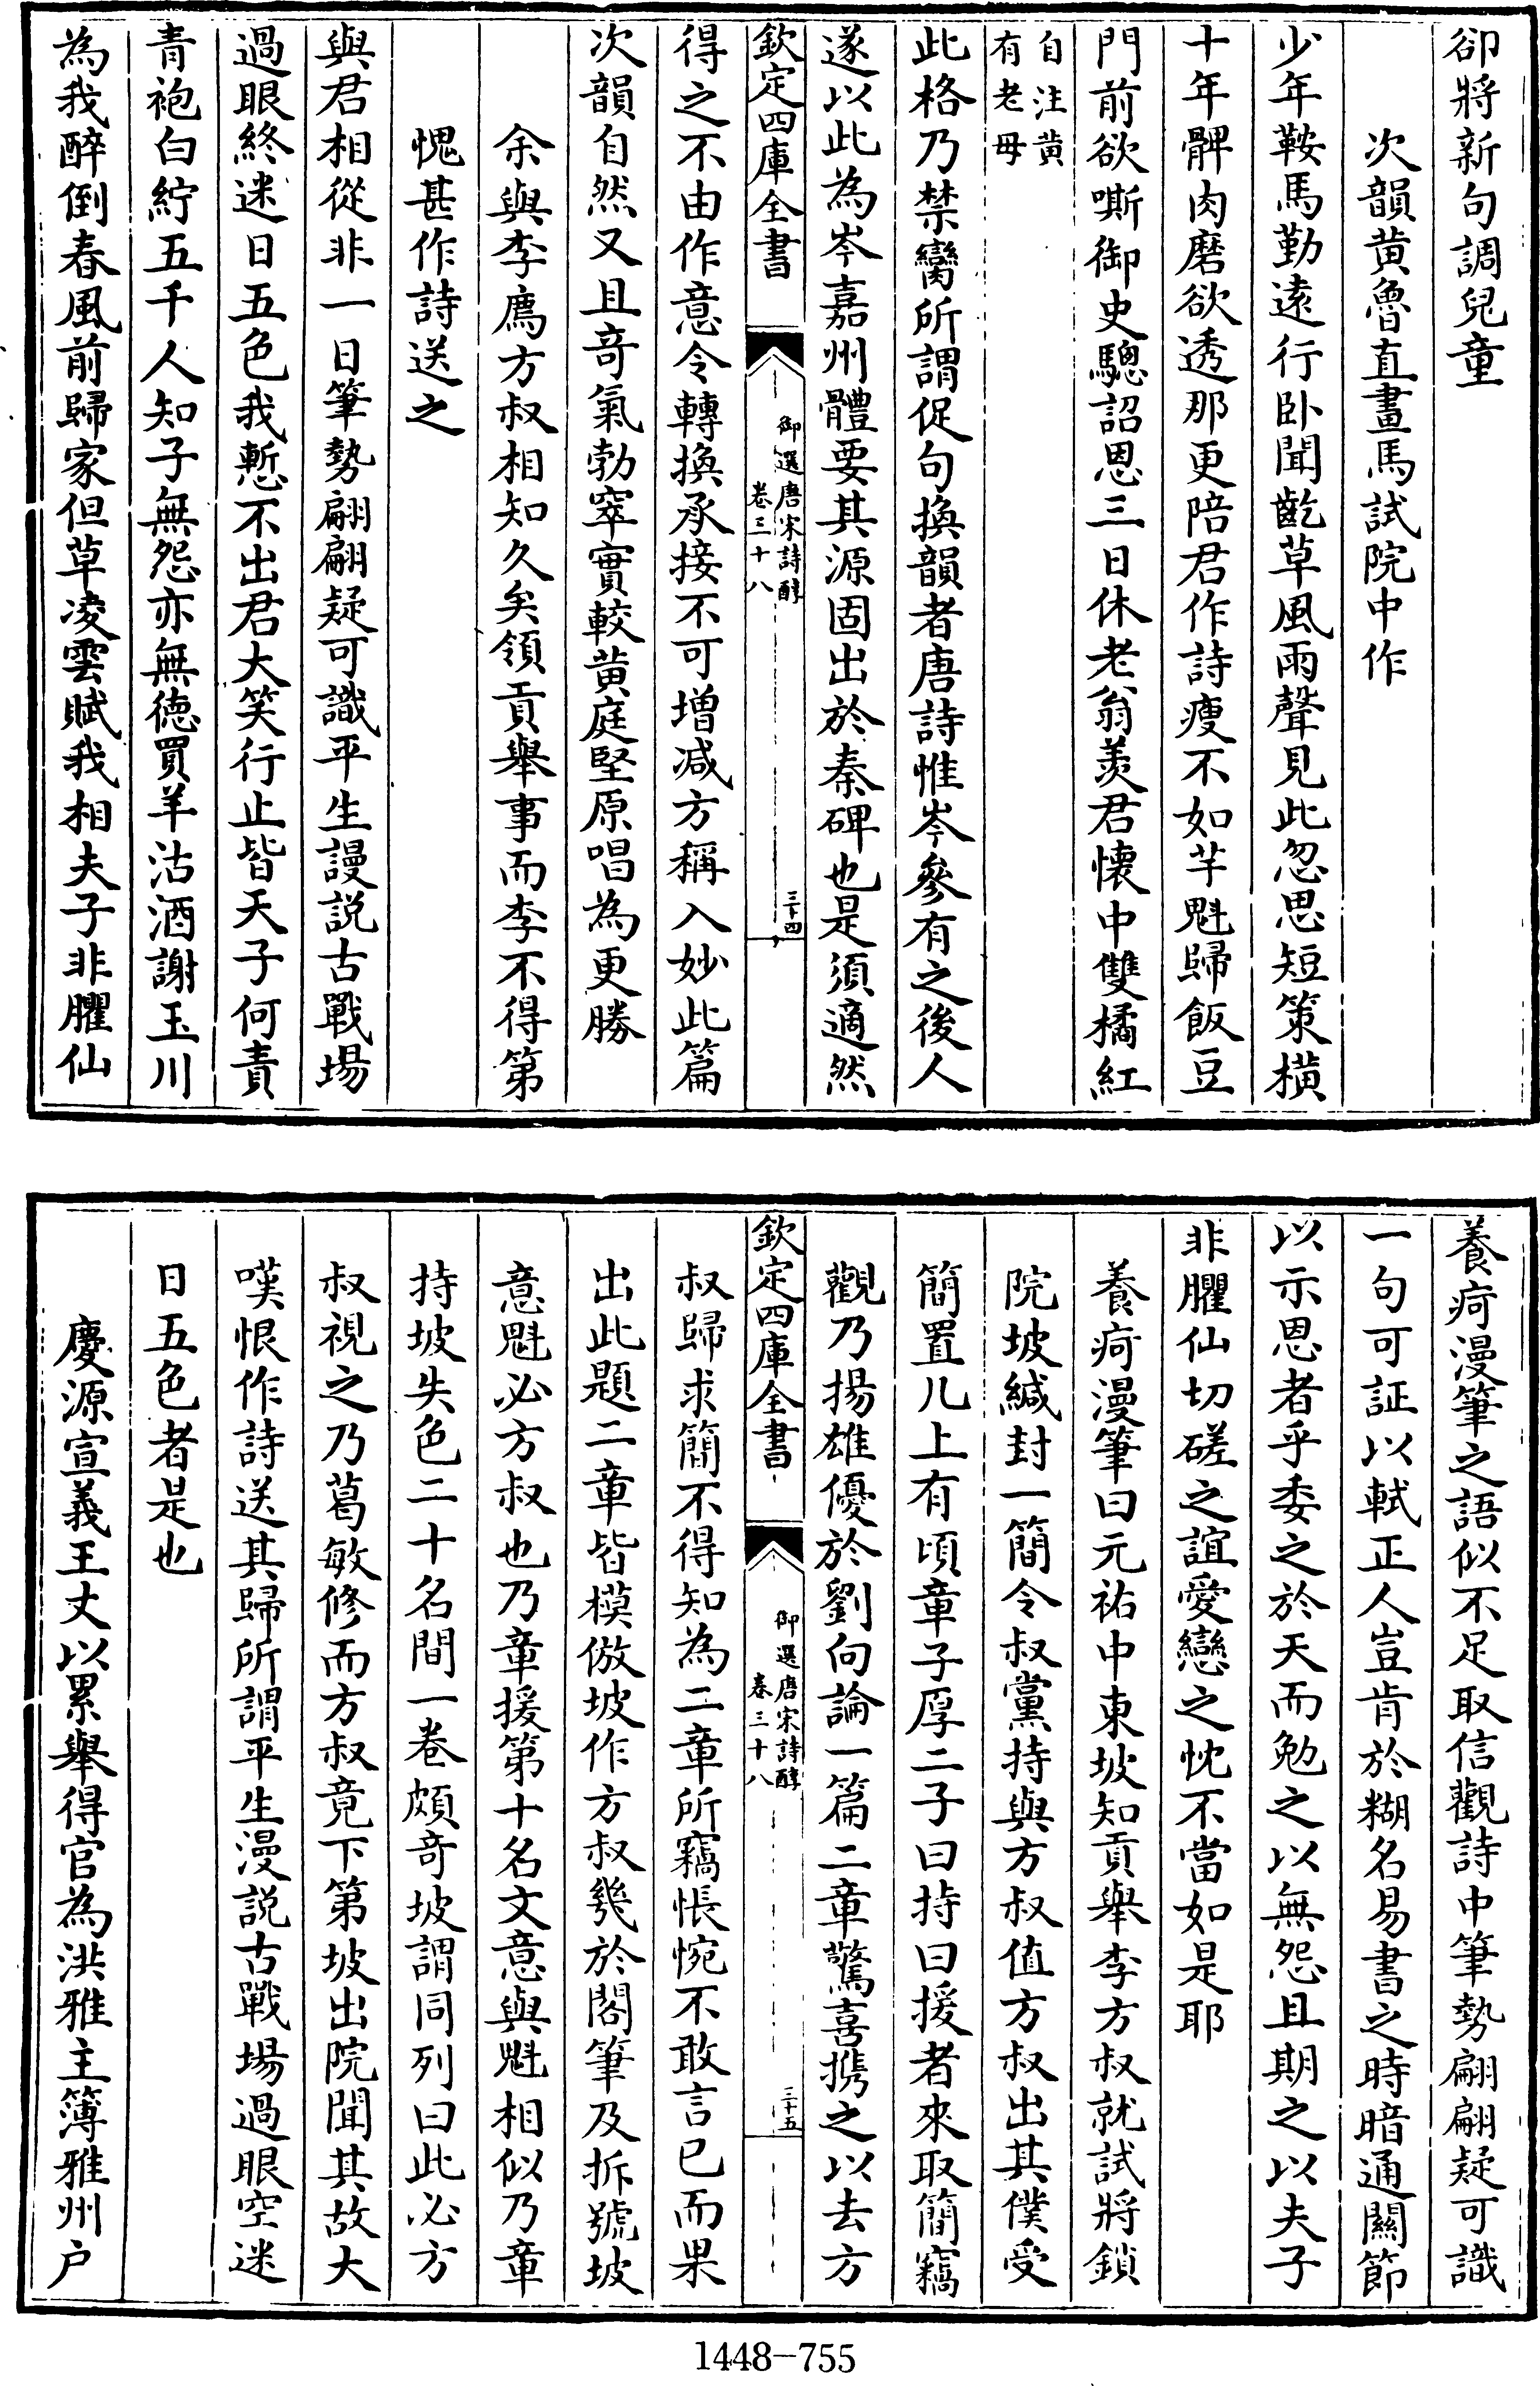 卻將新句調兒童
次韻黄魯直畫馬試院中作
少年鞍馬勤逺行卧聞齕草風雨聲見此忽思短策横
十年髀肉磨欲透那更陪君作詩瘦不如芋魁歸飯豆
門前欲嘶御史驄詔恩三日休老翁羨君懷中雙橘紅
自注黄
有老母
此格乃禁臠所謂促句換韻者唐詩惟岑參有之後人
遂以此為岑嘉州體要其源固出於秦碑也是須適然
欽定四庫全書
御選唐宋詩醇
卷三十八
三十四
得之不由作意令轉換承接不可增减方稱入妙此篇
次韻自然又且竒氣勃窣實較黄庭堅原唱為更勝
余與李廌方叔相知久矣領貢舉事而李不得第
愧甚作詩送之
與君相從非一日筆勢翩翩疑可識平生謾説古戰場
過眼終迷日五色我慙不出君大笑行止皆天子何責
青袍白紵五千人知子無怨亦無德買羊沽酒謝玉川
為我醉倒春風前歸家但草凌雲賦我相夫子非臞仙
養疴漫筆之語似不足取信觀詩中筆勢翩翩疑可識
一句可証以軾正人豈肯於糊名易書之時暗通關節
以示恩者乎委之於天而勉之以無怨且期之以夫子
非臞仙切磋之誼愛戀之忱不當如是耶
養疴漫筆曰元祐中東坡知貢舉李方叔就試將鎖
院坡緘封一簡令叔黨持與方叔值方叔出其僕受
簡置几上有頃章子厚二子曰持曰援者來取簡竊
觀乃揚雄優於劉向論一篇二章驚喜携之以去方
欽定四庫全書
御選唐宋詩醇
卷三十八
三十五
叔歸求簡不得知為二章所竊悵惋不敢言已而果
出此題二章皆模倣坡作方叔幾於閣筆及拆號坡
意魁必方叔也乃章援第十名文意與魁相似乃章
持坡失色二十名間一卷頗竒坡謂同列曰此必方
叔視之乃葛敏修而方叔竟下第坡出院聞其故大
嘆恨作詩送其歸所謂平生漫説古戰場過眼空迷
日五色者是也
慶源宣義王丈以累舉得官為洪雅主簿雅州户
1448-755